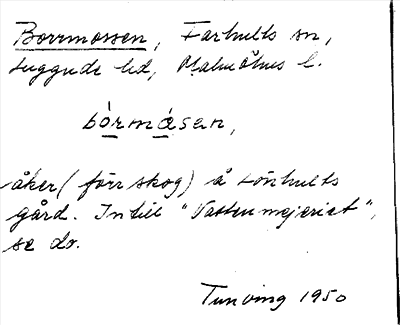 Borrmossen, Farhults sn,
Luggude hd, Malmöhus l.
bórmåsen,
åker (förr skog) å Lönhults
gård. Intill "Vattenmejeriet",
se do.
Tunving 1950